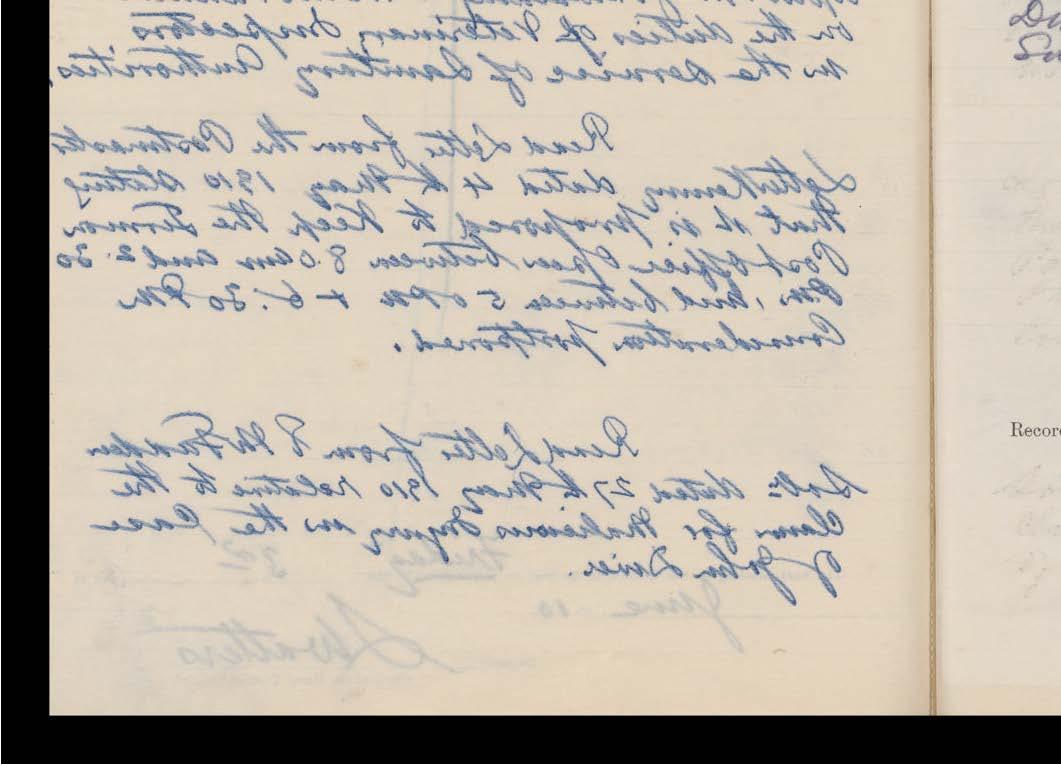 on the duties of Veterinary Inspectors
in the service of Sanitary Authorities.
Read Letter from the Postmaster
Letterkenny dated 4th May 1910 stating
that it is proposed to keep the
Post Office open between 8.0 am and 2.30
PM, and between 5.0 PM & 6.30 PM
Consideration postponed.
Read Letter from
Solr. dated 27th May 1910 relative to the
Claim for Malicious Injury in the Case
of John
Friday 3rd
June 10
Record